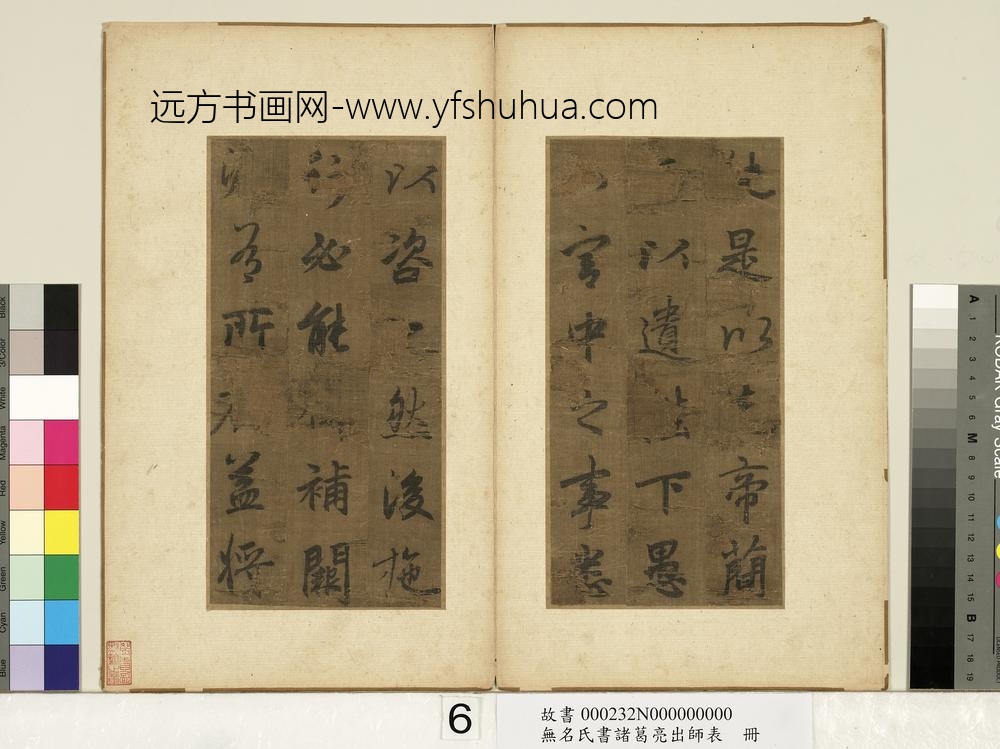 远方书画网-www.yfshuhua.com
是以帝簡
以遺下愚
宮中之事悉
以咨然後施
行必能補闕
有所益將
6
故書 000232N000000000
無名氏書諸葛亮出師表 冊
Black
3/Color
White
Magenta
Red
Yellow
Green
Cyan
Blue
A
1
2
3
4
5
6
M
8
9
10
11
12
13
14
15
B
17
18
19
Gray Scale